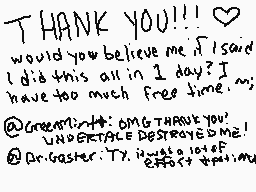 THANK YOU!!! ♡
would you believe me if I said
I did this all in 1 day? I
have too much free time. ;-;
@GreenMint*: OMG THANK YOU!
UNDERTALE DESTROYED ME!
@Dr.Gaster: TY. it was a lot of
effort + patience